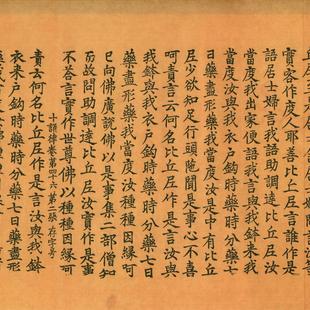 實客作度人耶善比丘尼言誰作是
語居士婦言我語助調達比丘尼言
當度我出家便語我言與我鉢來我
當度汝與我衣戶鉤時藥時分藥七
日藥盡形藥我當度汝是中有比丘
尼少欲知足行頭陀聞是事心不喜
呵責言云何名比丘尼作是言汝與
我鉢與我衣戶鉤時藥時分藥七日
藥盡形藥我當度汝種種因緣呵
已向佛廣說佛以是事集二部僧知
而故問助調達比丘尼汝實作是事
不答言實作世尊佛以種種因緣呵
十誦律卷第四十六 第二張 存字号
責云何名比丘尼作是言汝與我鉢
衣來戶鉤時藥時分藥七日藥盡形